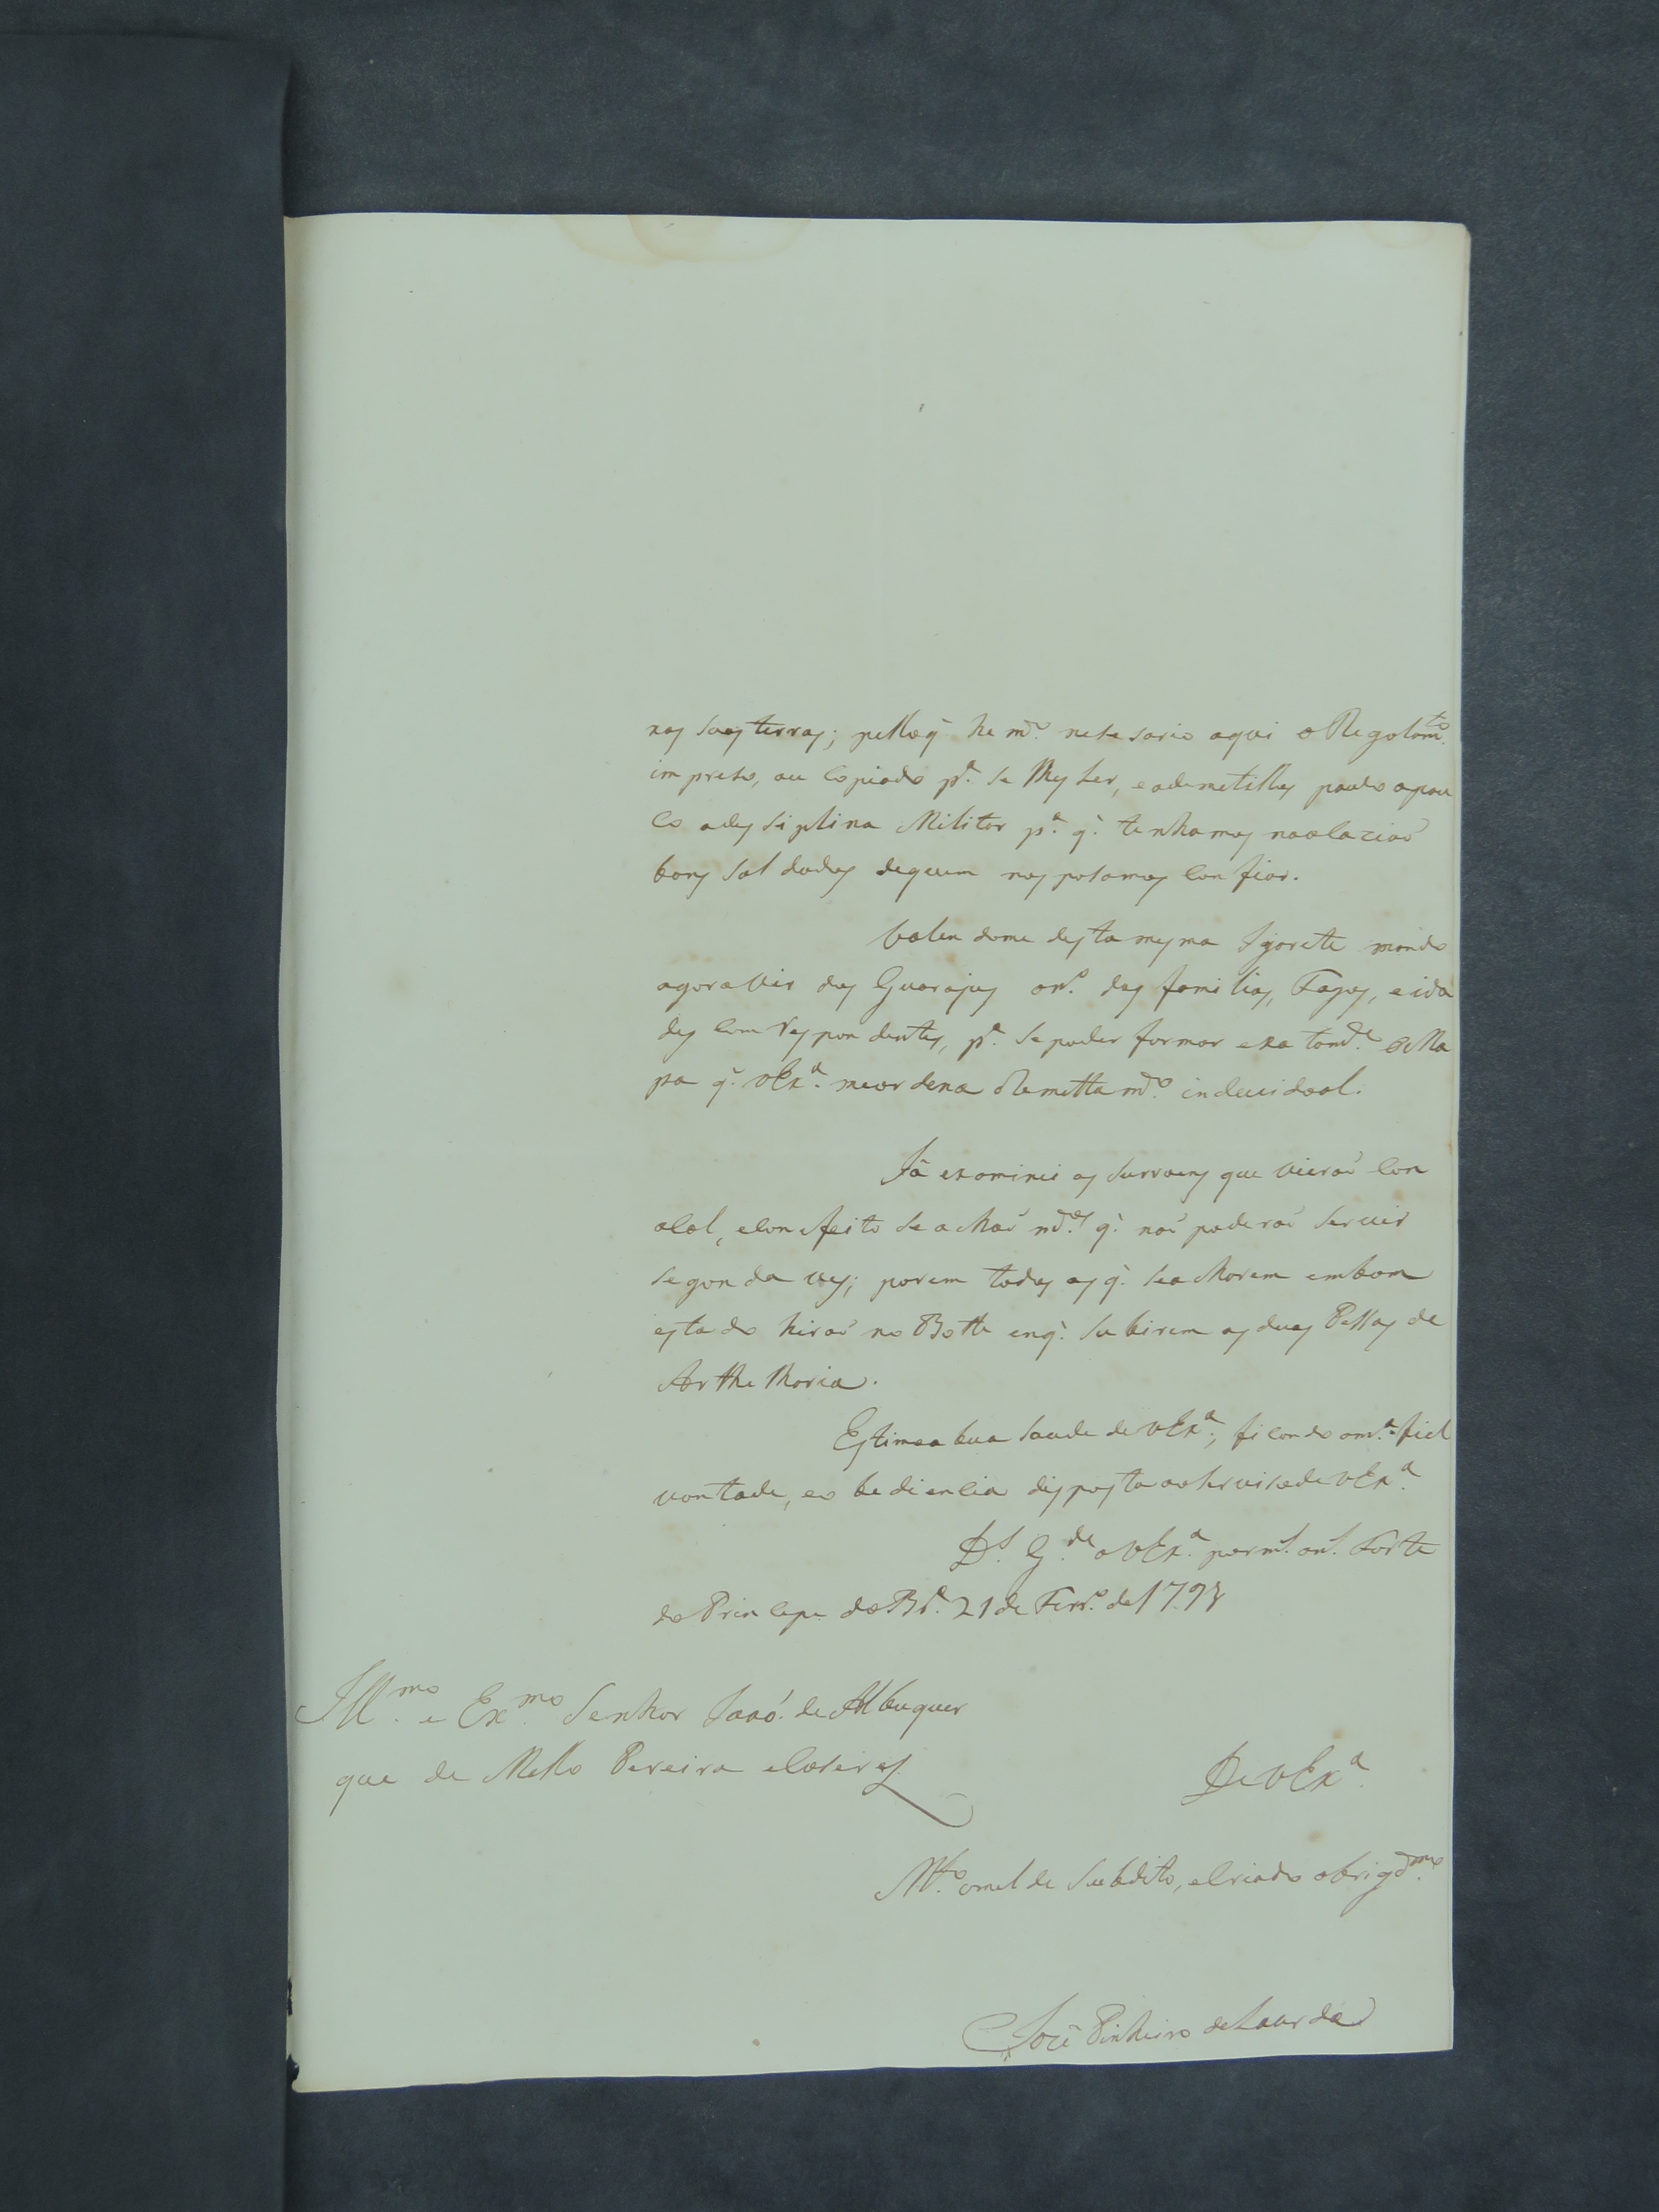 nas suas terras; pelloq̃ he m.to nesesario aqui o Regolam.to
impreso, ou Copiado p.a se lhes Ler, e ademetilhes pouco apou
co a des siplina Militar p.a q̃ tenhamos naoCaziaõ
bons sol dados dequem nos posamos Con fiar.
Valen dome desta mesma mando
agora vir dos Guarajus on.o das familias, Fogos, e ida
des Com Res pon dentes, p.a se poder formar exa tam.te oMa
pa q̃ VEx.a meor dena Remetta m.to indeuidoal.
Já exominei as surroens que vieraõ Con
oSal, eCon efeito se achaõ m.tas q̃ naõ poderaõ seruir
segon da ues; porem todas as q̃ seacharem embom
esta do hiraõ no Botte enq̃ su birem as duas Pessas de
Arthe lharia.
Estimoa boa saude de VEx.a, fi Cando am.a fiel
vontade, eo be dien Cia disposta aoseruisode VEx.a
D.s G.de aVEx.a porm.s an.s Forte
do Prin Cepe da Br.a 21 de Feur.o de 1798
Ill.mo e Ex.mo Senhor Joaõ de Albuquer
que de Mello Pereira eCaseres
De VEx.a
M.to omilde Subdito, eCriado obrigd.mo
Joze Pinheiro deLacerda